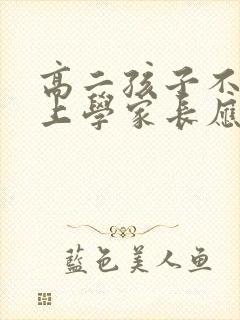 高二孩子不
上學家長應
藍色美人鱼